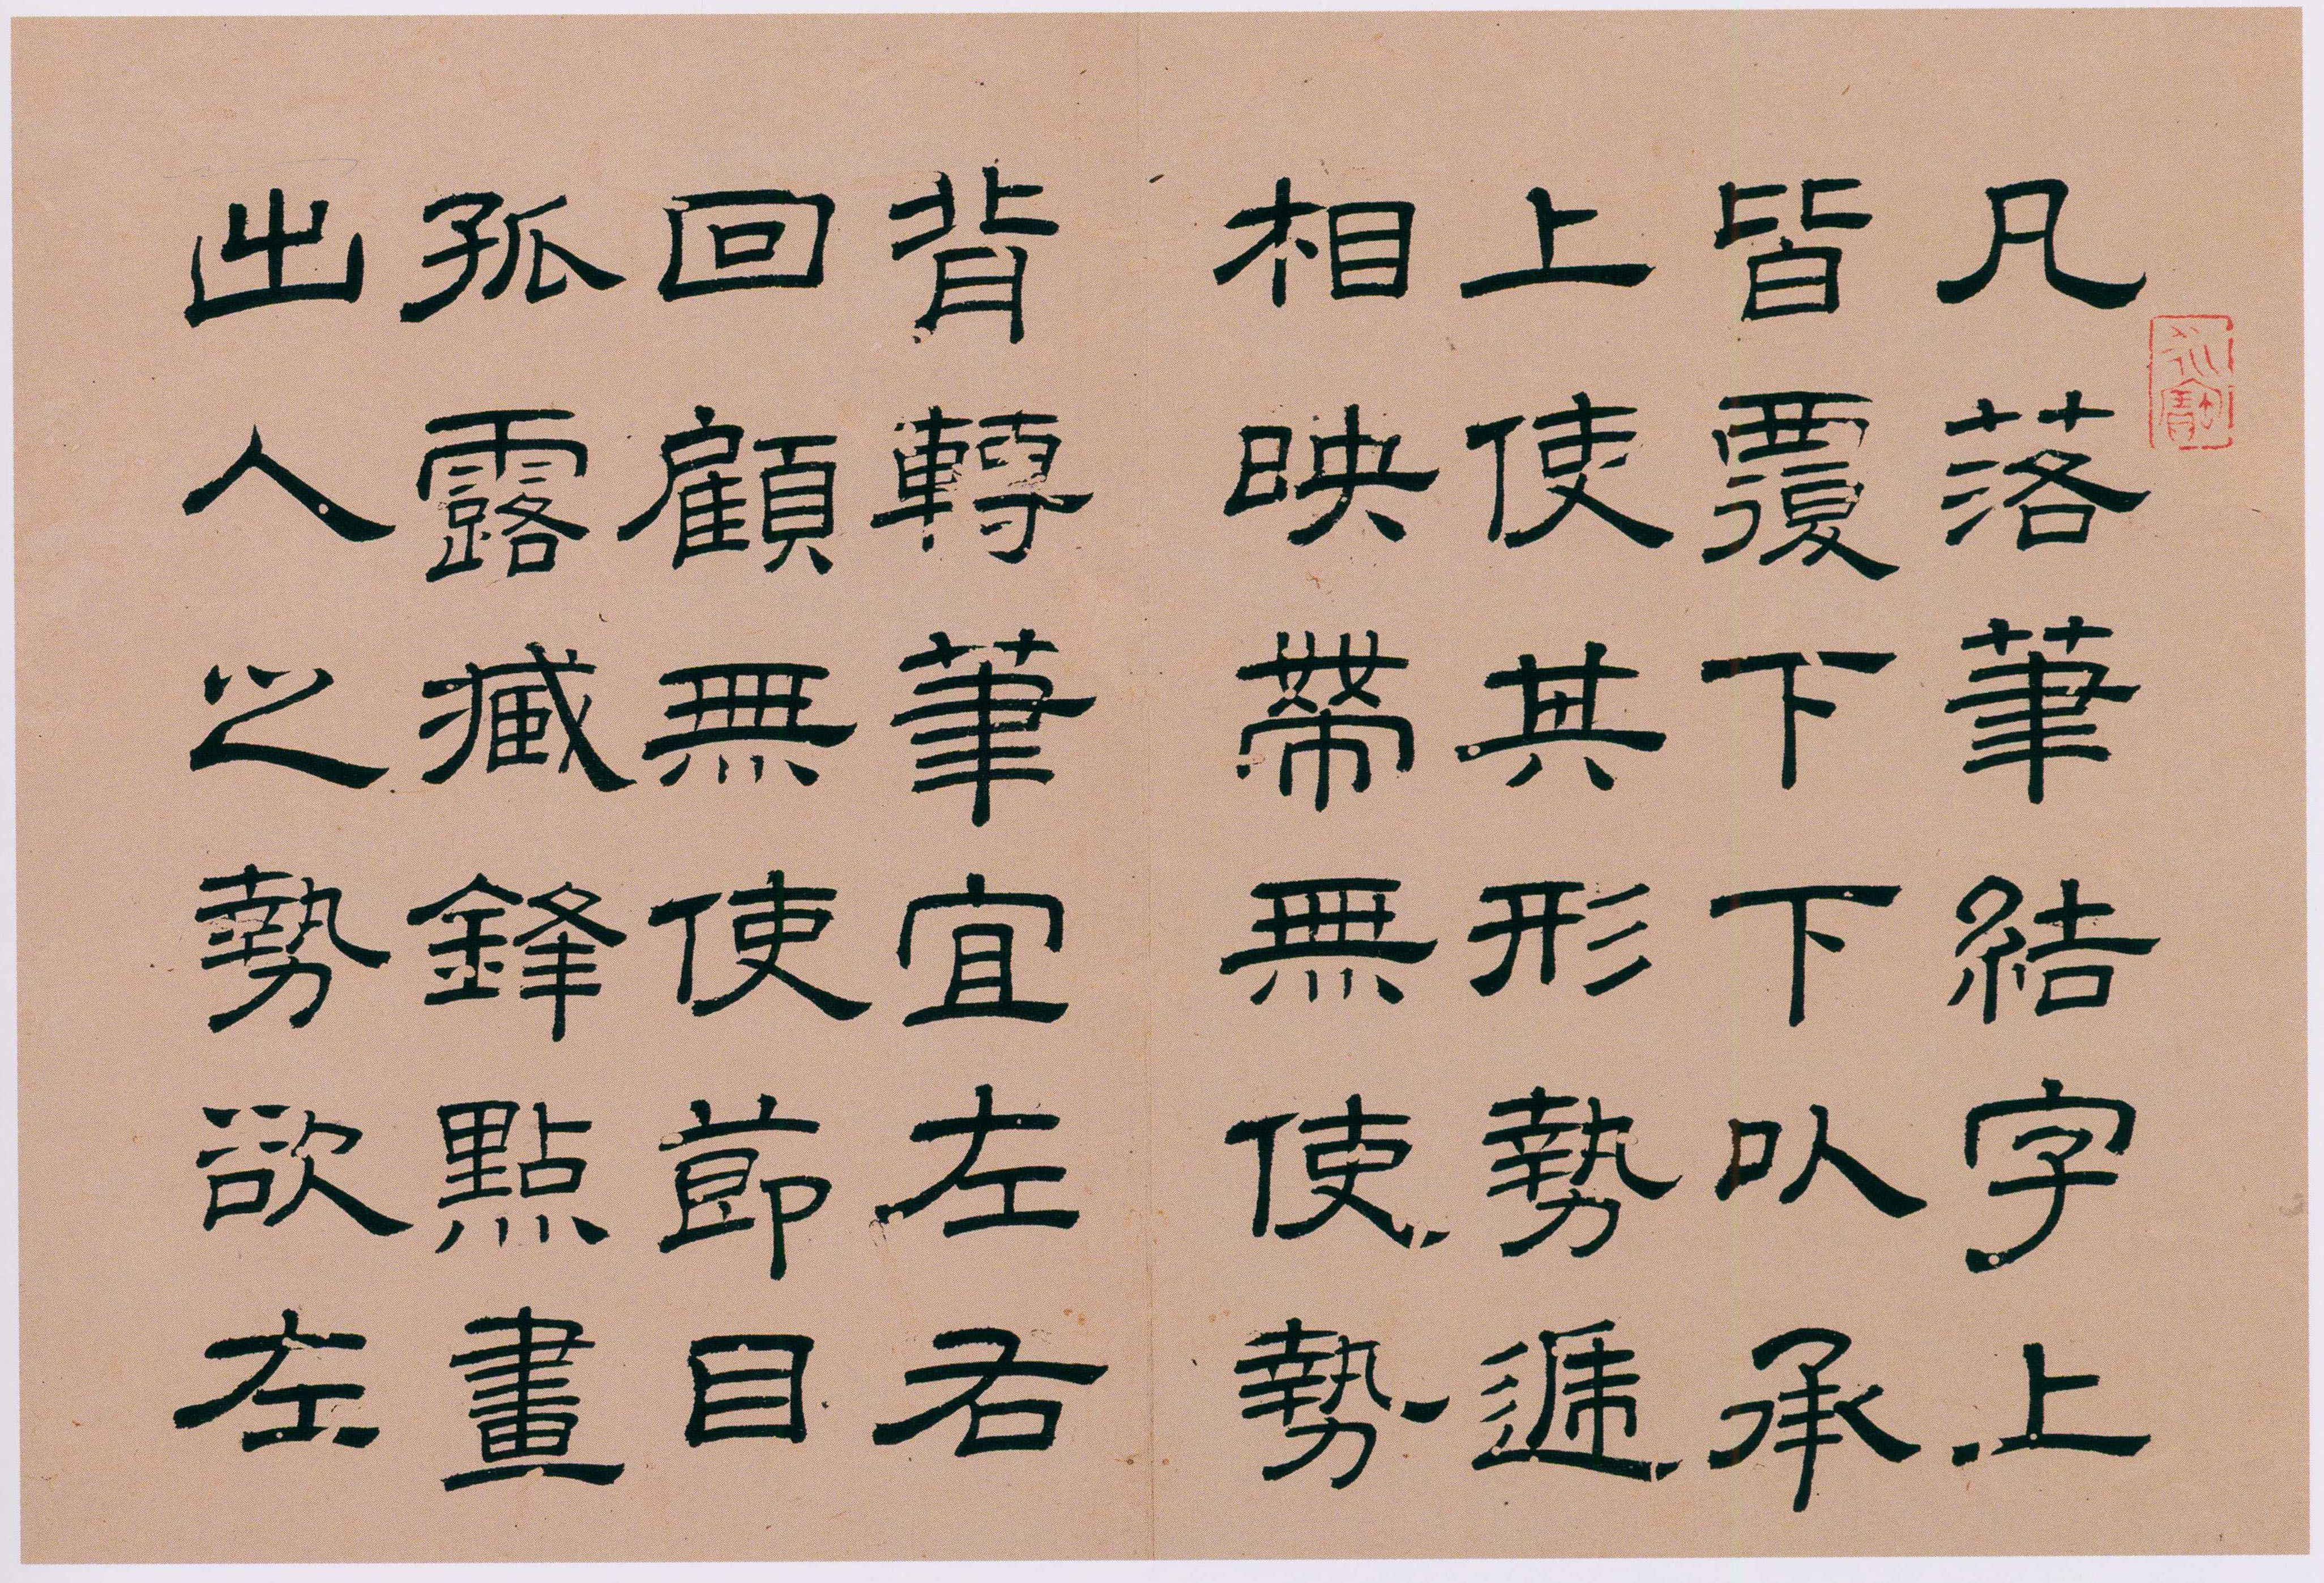 凡落筆結字上
皆覆下下以承
上使其形勢遞
相映帶無使勢
背轉筆宜左右
回顧無使節目
孤露藏鋒點畫
出入之勢欲左